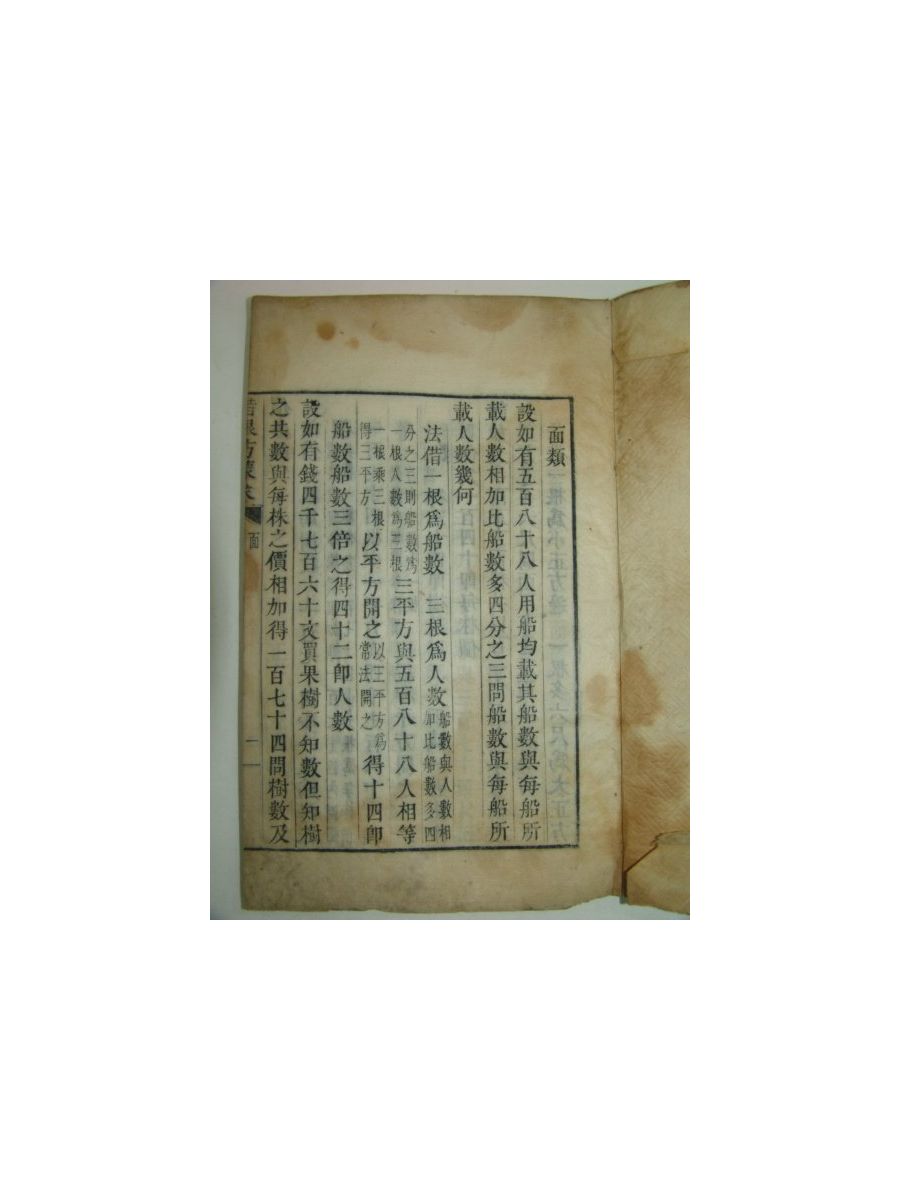 面類
設如有五百八十八人用船均載其船數與每船所
載人數相加比船數多四分之三問船數與每船所
載人數幾何
法借一根爲船數 三根爲人數船數與人數相
加比船數多四
分之三則船數爲
一根人數爲三根三平方與五百八十八人相等
一根乘三根
得三平方以平方開之以三平方爲
常法開之得十四卽
船數船數三倍之得四十二卽人數
設如有錢四千七百六十文買果樹不知數但知樹
之共數與每株之價相加得一百七十四問樹數及
面 一